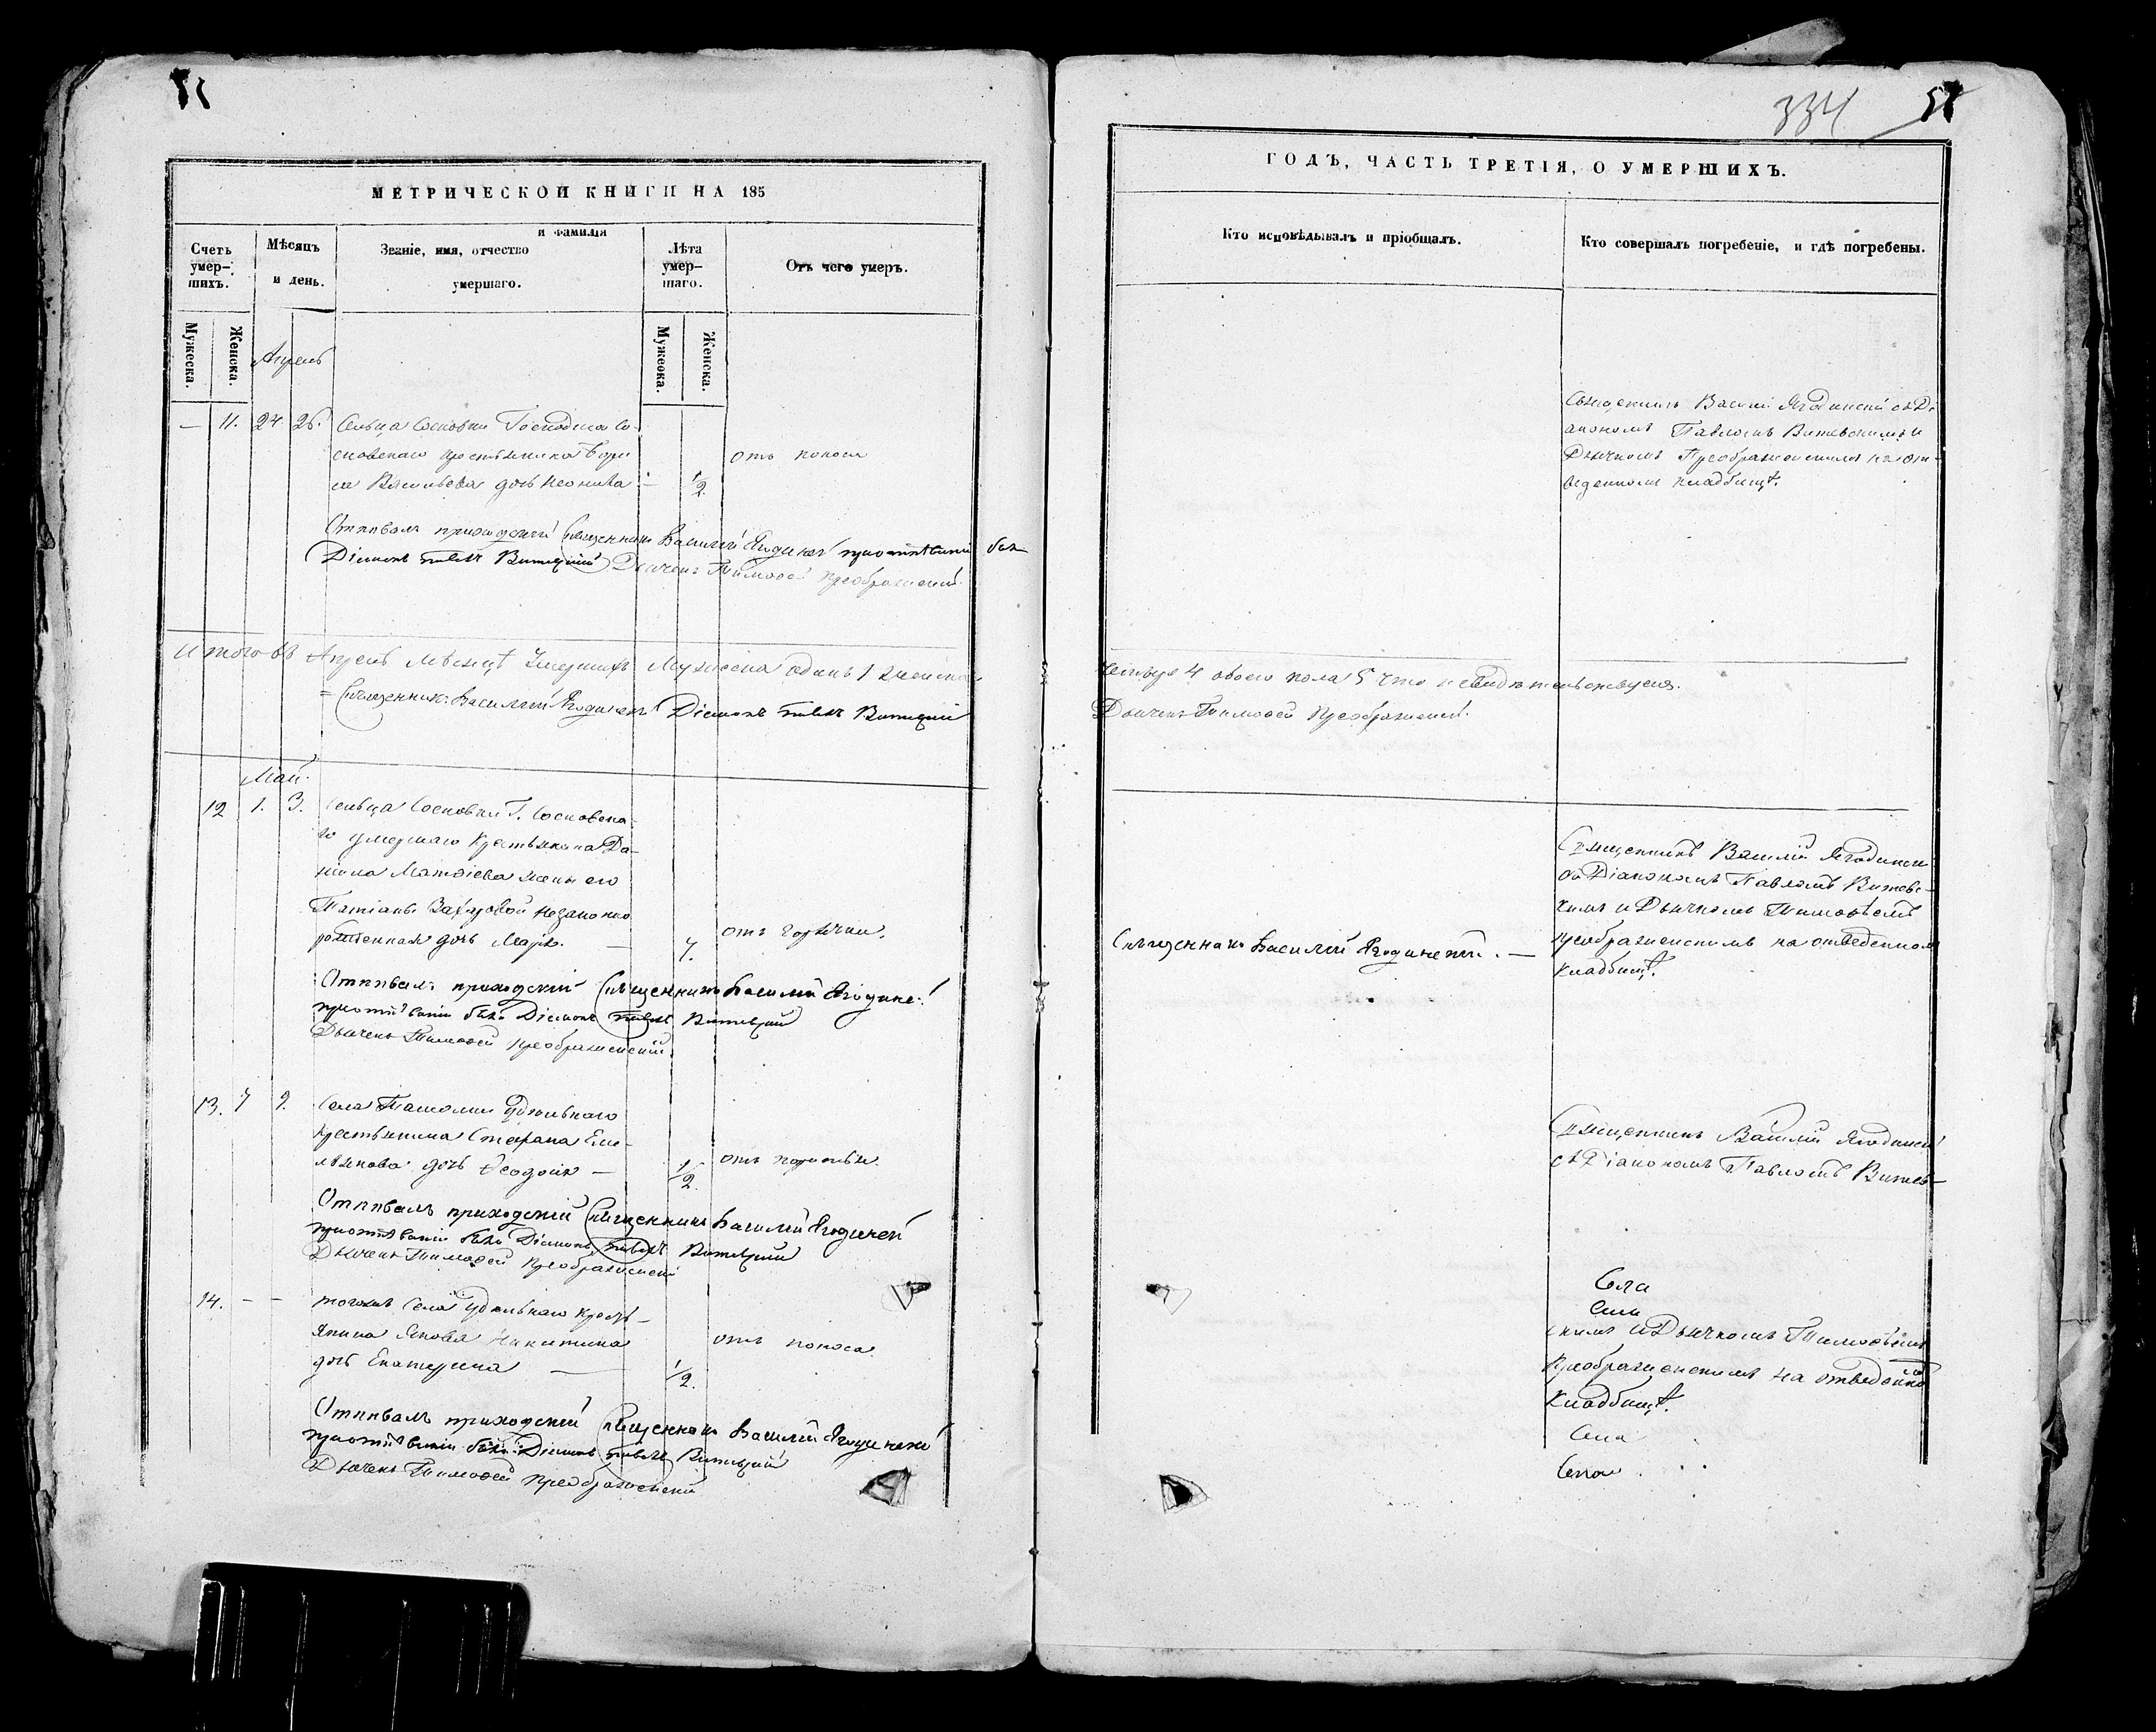 МЕТРИЧЕСКОЙ КНИГИ НА 185
Счетъ умер-шихъ.
Мѣсяцъ и день.
Званіе, имя, отчество и фамилія умершаго.
Лѣта умер-шаго.
Отъ чего умеръ.
Мужеска.
Женска.
Мужеска.
Женска.
Апрель
— 11. 24 26. Сельца Сосновки Господина Со-
сновскаго крестьянина Бори
са Васильева дочь Неонила — 1/2 отъ поноса
Отпѣвалъ приходскій Священникъ Василій Ягодинскій при отпѣваніи былъ
Діаконъ Павелъ Витевскій Дьячекъ Тимофей Преображенскій
Итого въ Апрелѣ мѣсяцѣ Умершихъ Мужеска одинъ 1 женска
Священникъ Василій Ягодинскій Діаконъ Павелъ Витевскій
Май
12 1. 3. Сельца Сосновки Г. Сосновска-
го умершаго Крестьянина Да-
нила Матвіева жены его
Татіаны Захаровой незаконно
рожденная дочь Марія. — 7. отъ горячки.
Отпѣвалъ приходскій Священникъ Василій Ягодинскій
при отпѣваніи былъ Діаконъ Павелъ Витевскій
Дьячекъ Тимофей Преображенскій
13. 7 9. Села Ташолки Удѣльнаго
Крестьянина Стефана Еме-
льянова дочь Ѳеодосія — 1/2. отъ
Отпѣвалъ приходскій Священникъ Василій Ягодинскій
при отпѣваніи былъ Діаконъ Павелъ Витевскій
Дьячекъ Тимофей Преображенскій
14. — — тогожъ Села Удѣльнаго Кресть-
янина Якова Никитина
дочь Екатерина — 1/2. отъ поноса.
Отпѣвалъ приходскій Священникъ Василій Ягодинскій
при отпѣваніи былъ Діаконъ Павелъ Витевскій
Дьячекъ Тимофей Преображенскій
334
ГОДЪ, ЧАСТЬ ТРЕТІЯ, О УМЕРШИХЪ.
Кто исповѣдывалъ и пріобщалъ.
Кто совершалъ погребеніе, и гдѣ погребены.
Священникъ Василій Ягодинскій съ Ді
акономъ Павломъ Витевскимъ и
Дьячкомъ Преображенскимъ на от-
веденномъ кладбищѣ.
четыре 4 обоего пола 5 что и свидѣтельствуемъ.
Дьячекъ Тимофей Преображенскій.
Священникъ Василій Ягодинскій. —
Священникъ Василій Ягодинскій
съ Діакономъ Павломъ Витевс-
кимъ и Дьячкомъ Тимофѣемъ
Преображенскимъ на отведенномъ
Кладбищѣ.
Священникъ Василій Ягодинскій
съ Діакономъ Павломъ Витев-
Села
Села
скимъ и Дьячкомъ Тимофѣемъ
Преображенскимъ на отведенно
Кладбищѣ.
Села
Села